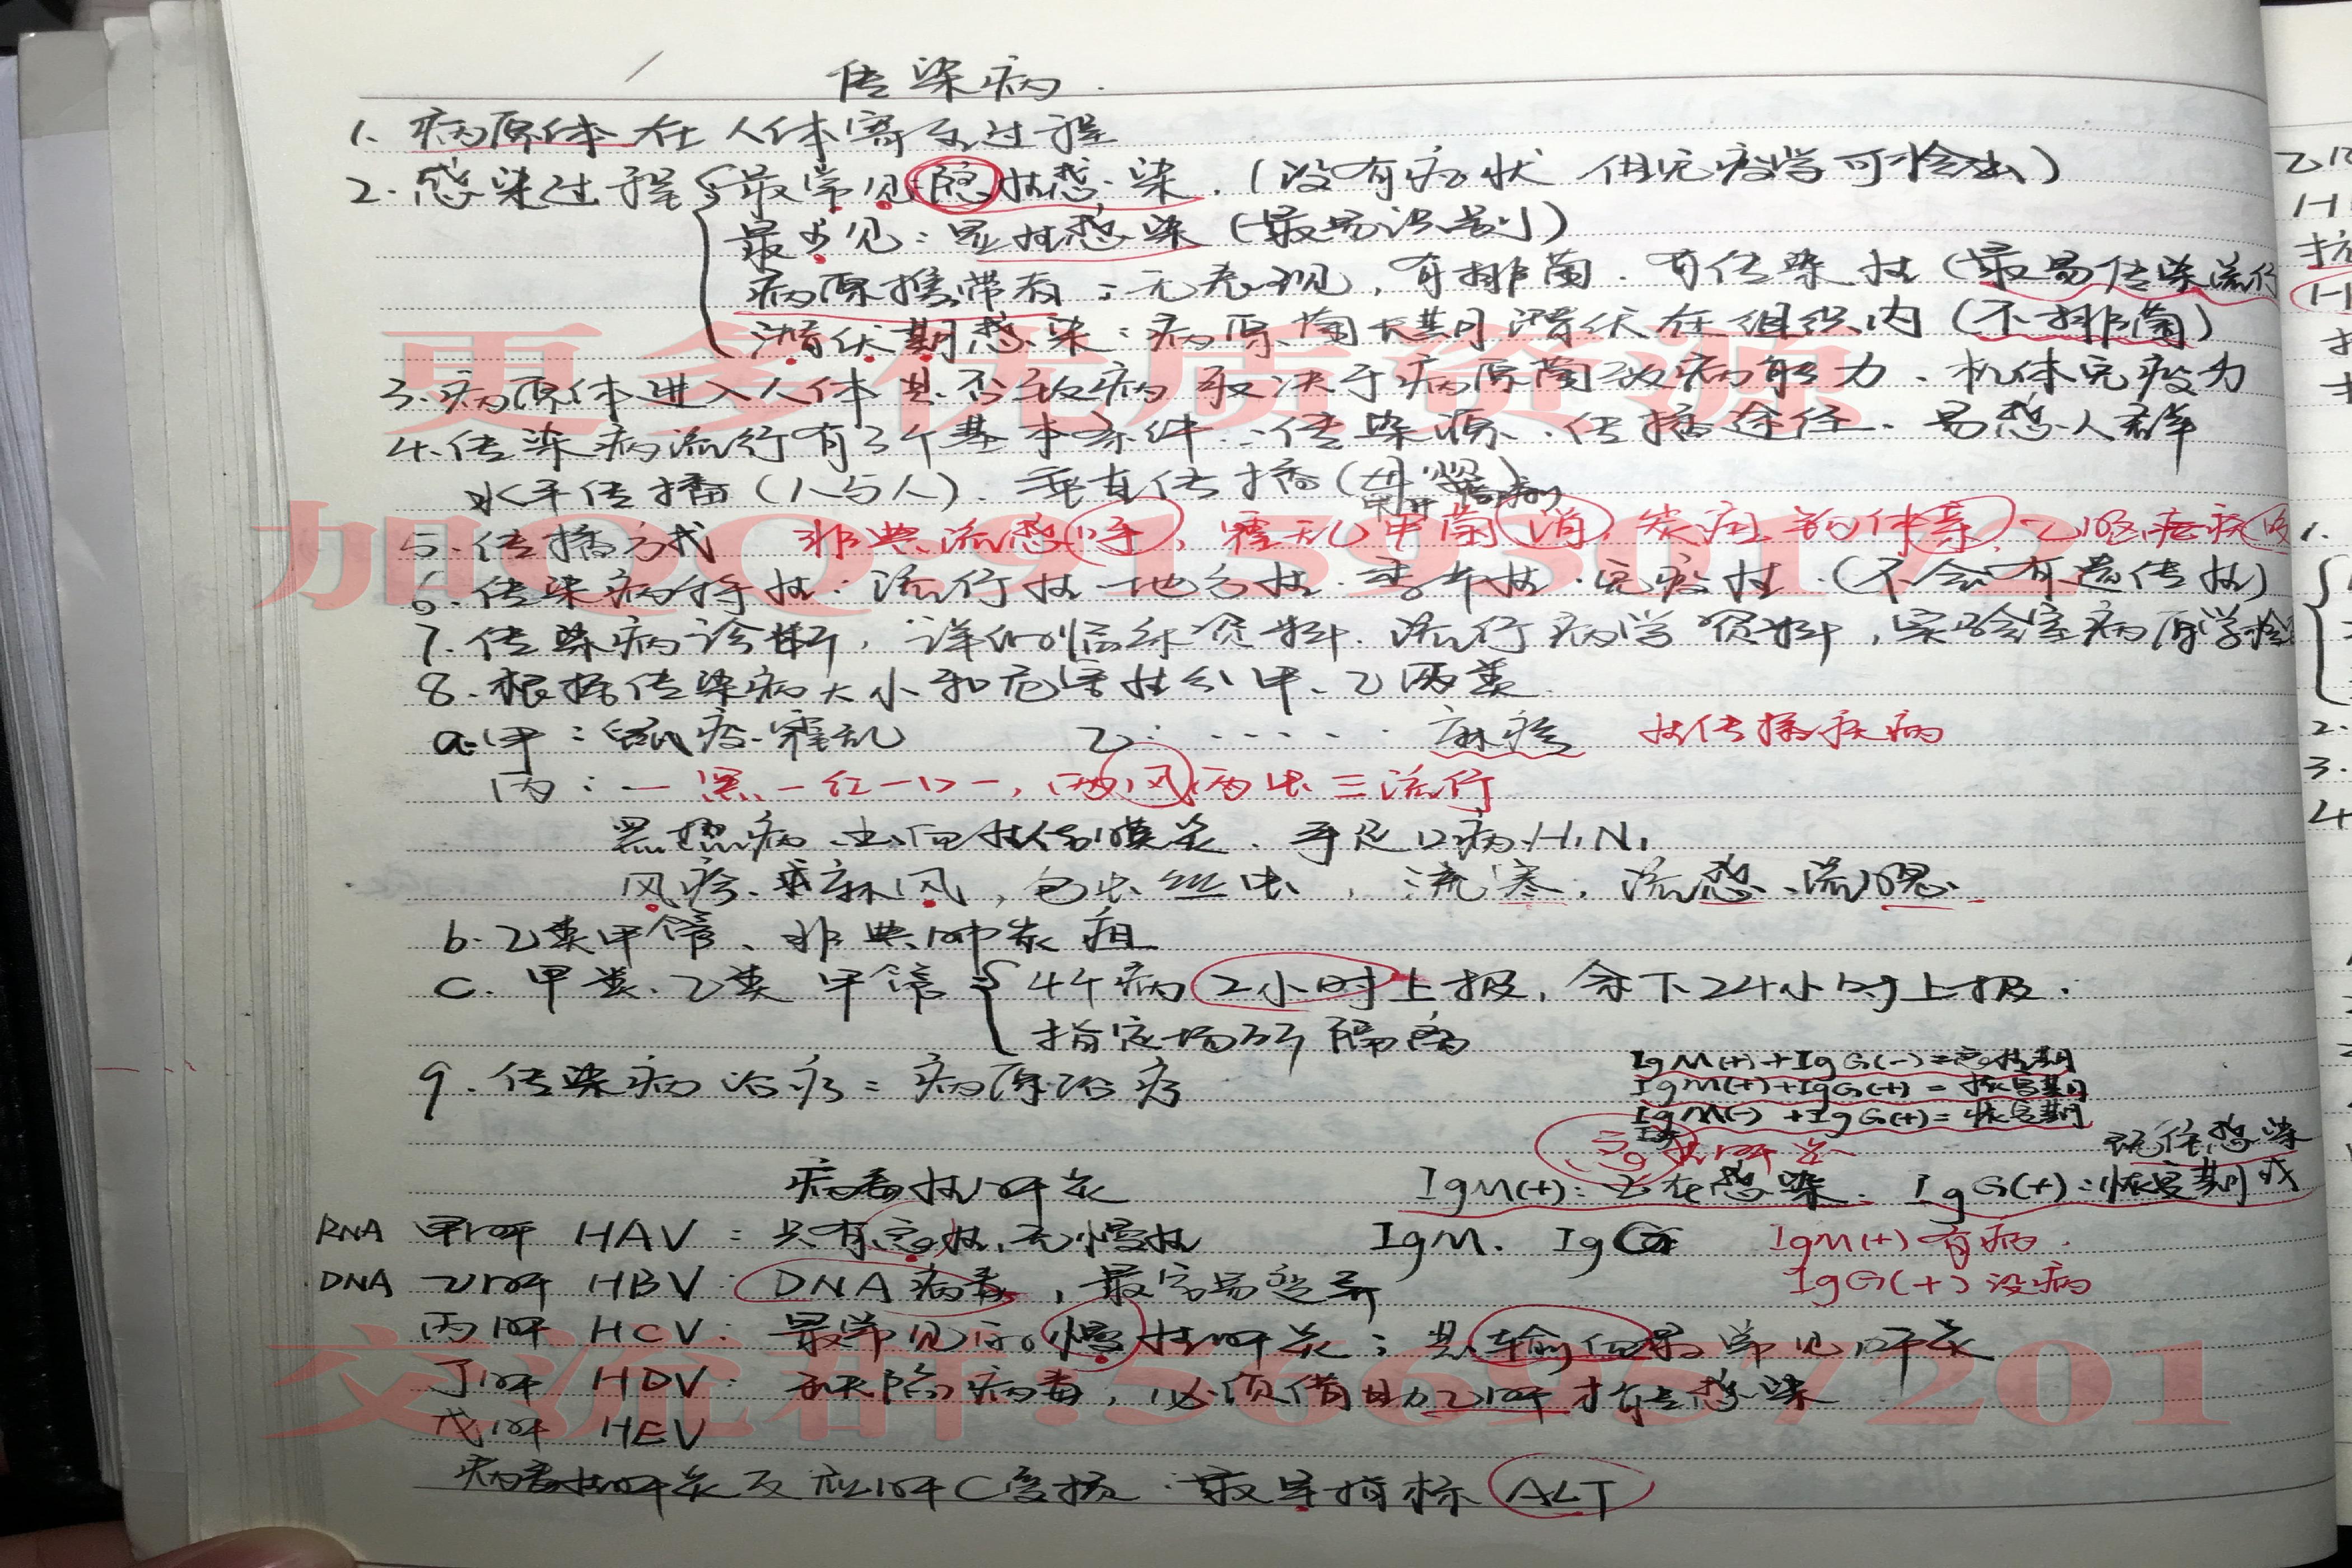 传染病.
1、病原体在人体寄生过程
2.感染过程{最常见:隐性感染.(没有症状 但免疫学可检出)
最少见:显性感染(最易识别)
病原携带者:无表现,有排菌.有传染性(最易传染流行
潜伏期感染:病原菌长期潜伏在组织内(不排菌)
更多优质资源
3.病原体进入人体是否致病取决于病原菌致病能力、机体免疫力
4.传染病流行有3个基本条件:传染源、传播途径、易感人群
水平传播(人与人)、垂直传播(母婴
加QQ:915930172
5.传播方式 非典流感呼,霍乱甲菌消,炭疽钩体亲,乙脑疟疾
6.传染病特性:流行性.地方性.季节性.免疫性.(不会有遗传性)
7.传染病诊断,详细临床资料.流行病学资料,实验室病原学检
8.根据传染病大小和危害性分甲、乙两类.
a.甲:鼠疫.霍乱 乙:...... 麻疹 性传播疾病
丙:一黑一红一口一,两风两虫三流行
黑热病、出血性结膜炎、手足口病、H1N1
风疹、麻风,包虫丝虫,流寒,流感、流腮
b.乙类甲管、非典肺炭疽
c.甲类、乙类甲管={4个病2小时上报,余下24小时上报.
指定场所隔离
9.传染病治疗=病原治疗
IgM(+)+IgG(-)=急性期
IgM(+)+IgG(+)=恢复期
IgM(-)+IgG(+)=恢复期
急性肝炎
既往感染
病毒性肝炎 IgM(+):正在感染. IgG(+):恢复期或
RNA 甲肝 HAV:只有急性,无慢性 IgM. IgG IgM(+)有病.
DNA 乙肝 HBV:DNA病毒,最容易变异 IgG(+)没病
丙肝 HCV:最常见的慢性肝炎;是输血最常见肝炎
交流群:566957201
丁肝 HDV:缺陷病毒,必须借助乙肝才能感染
戊肝 HEV
病毒性肝炎反应肝C受损.最早指标ALT